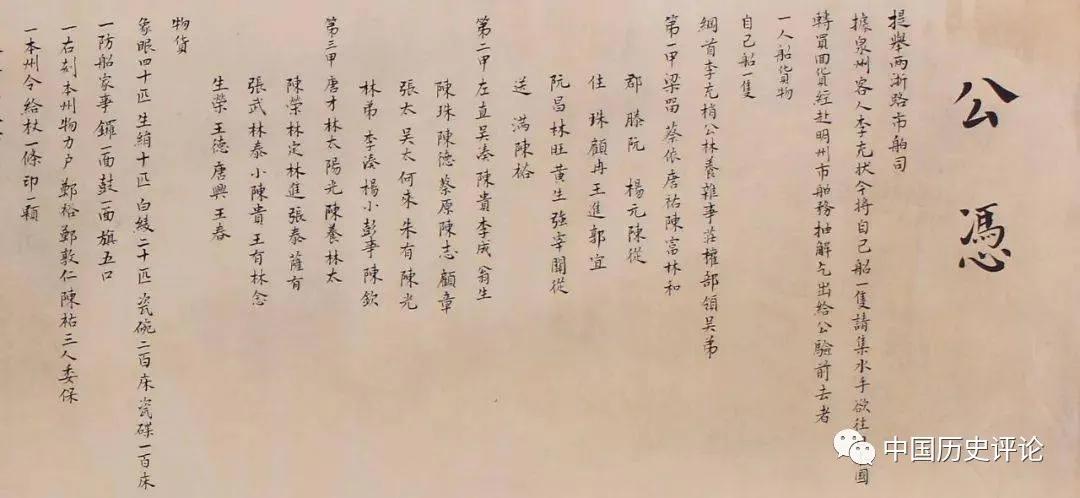 公憑
提舉兩浙路市舶司
據泉州客人李充狀今將自己船一隻請集水手欲往 國
轉買囬貨經赴明州市舶務抽解乞出給公驗前去者
一人船貨物
自己船一隻
綱首李充梢公林養雜事莊權部領吳弟
第一甲梁留 蔡依唐祐陳富林和
郡 滕阮 楊元陳從
住 珠顧冉王進郭宜
阮昌林旺黃生強宰關從
送 滿陳裕
第二甲左直吳湊陳貴李成翁生
陳珠陳德蔡原陳志顧章
張太吳太何來朱有陳光
林弟 李湊楊小彭事陳欽
第三甲唐才林太陽光陳養林太
陳榮林定林進張泰薩有
張武林泰小陳貴王有林念
生榮王德唐興王春
物貨
象眼四十匹生絹十匹白綾二十匹瓷碗二百床瓷碟一百床
一防船家事鑼一面鼓一面旗五口
一右刻本州物力户 鄭裕鄭敦仁陳祐三人委保
一本州令給杖一條印一顆
中国历史评论